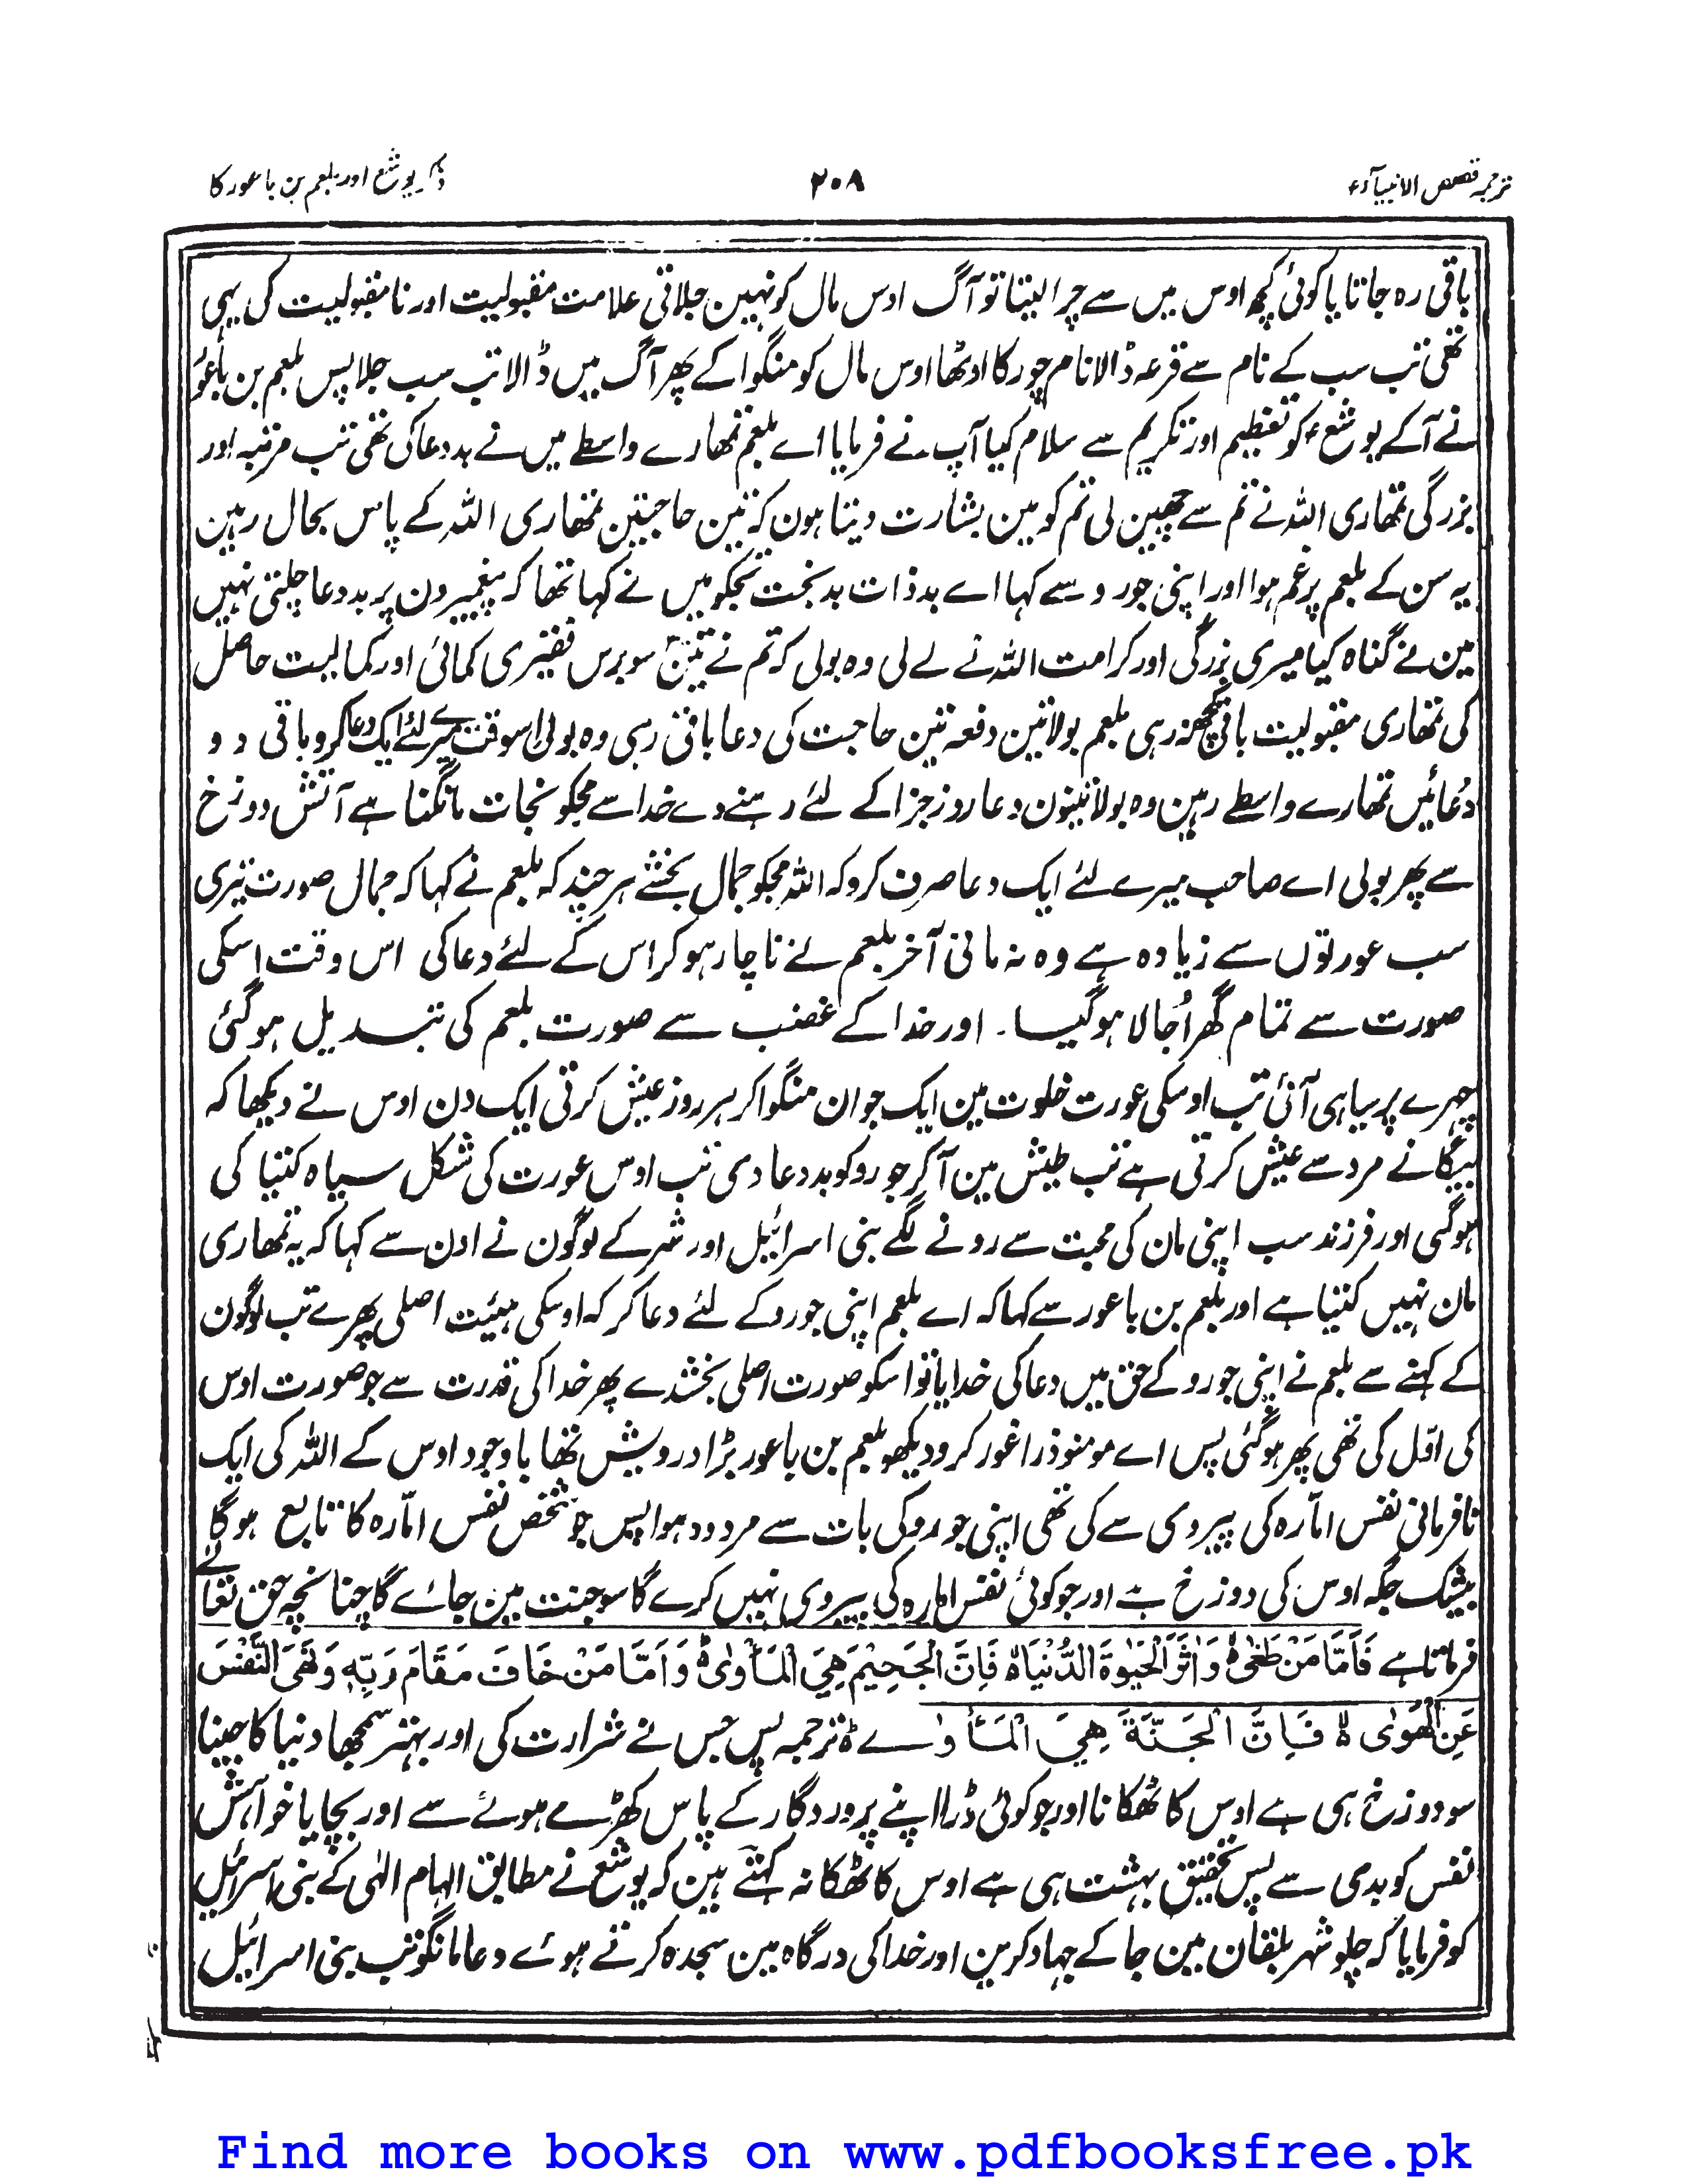 ترجمہ قصص الانبیآء
۲۰۸
ذکر یوشع اور بلعم بن باعور کا
باقی رہ جاتا یا کوئی کچھ اوس میں سے چرا لیتا تو آگ اوس مال کو نہین جلاتی علامت مقبولیت اور نا مقبولیت کی یہی
تھی تب سب کے نام سے قرعہ ڈالا نام چور کا اوٹھا اوس مال کو منگوا کے پھر آگ میں ڈالا تب سب جلا پس بلعم بن باعور
نے آ کے یوشع ؑ کو تعظیم اور تکریم سے سلام کیا آپ نے فرمایا اے بلعم تمھارے واسطے میں نے بددعا کی تھی تب مرتبہ اور
بزرگی تمھاری اللہ نے تم سے چھین لی تم کو مین بشارت دیتا ہون کہ تین حاجتین تمھاری اللہ کے پاس بحال رہین
یہ سن کے بلعم پرغم ہوا اور اپنی جورو سے کہا اے بدذات بدبخت تجکو میں نے کہا تھا کہ پیغمبرون پر بددعا چلتی نہیں
مین نے گناہ کیا میری بزرگی اور کرامت اللہ نے لے لی وہ بولی کہ تم نے تین سو برس فقیری کمائی اور کمالیت حاصل
کی تمھاری مقبولیت باقی کچھ نہ رہی بلعم بولا تین دفعہ تین حاجت کی دعا باقی رہی وہ بولی اسوقت میرے لئے ایک دعا کرو باقی دو
دُعائیں تمھارے واسطے رہین وہ بولا تینون دعا روز جزا کے لئے رہنے دے خدا سے مجکو نجات مانگنا ہے آتش دوزخ
سے پھر بولی اے صاحب میرے لئے ایک دعا صرف کرو کہ اللہ مجکو جمال بخشے ہر چند کہ بلعم نے کہا کہ جمال صورت تیری
سب عورتوں سے زیادہ ہے وہ نہ مانی آخر بلعم نے ناچار ہو کر اس کے لئے دعا کی اس وقت اسکی
صورت سے تمام گھر اُجالا ہوگیا۔ اور خدا کے غضب سے صورت بلعم کی تبدیل ہو گئی
چہرے پر سیاہی آئی تب اوسکی عورت خلوت مین ایک جوان منگوا کر ہر روز عیش کرتی ایک دن اوس نے دیکھا کہ
بیگانے مرد سے عیش کرتی ہے تب طیش مین آ کر جورو کو بددعا دی تب اوس عورت کی شکل سیاہ کتیا کی
ہوگئی اور فرزند سب اپنی مان کی محبت سے رونے لگے بنی اسرائیل اور شہر کے لوگون نے اون سے کہا کہ یہ تمھاری
مان نہیں کتیا ہے اور بلعم بن باعور سے کہا کہ اے بلعم اپنی جورو کے لئے دعا کر کہ اوسکی ہیئت اصلی پھرے تب لوگون
کے کہنے سے بلعم نے اپنی جورو کے حق میں دعا کی خدایا تو اسکو صورت اصلی بخشدے پھر خدا کی قدرت سے جو صورت اوس
کی اوّل کی تھی پھر ہو گئی پس اے مومنو ذرا غور کرو دیکھو بلعم بن باعور بڑا درویش تھا باوجود اوس کے اللہ کی ایک
نافرمانی نفس امّارہ کی پیروی سے کی تھی اپنی جورو کی بات سے مردود ہوا پس جو شخص نفس امّارہ کا تابع ہو گا
بیشک جگہ اوس کی دوزخ ہے اور جو کوئی نفس امارہ کی پیروی نہیں کرے گا سو جنت مین جائے گا چنانچہ حق تعالے
فرماتا ہے فَاَمَّا مَنْ طَغٰیۙ وَاٰثَرَ الْحَیٰوةَ الدُّنْیَاۙ فَاِنَّ الْجَحِیْمَ هِیَ الْمَأْوٰیؕ وَاَمَّا مَنْ خَافَ مَقَامَ رَبِّهٖ وَنَهَی النَّفْسَ
عَنِ الْهَوٰی ۙ فَاِنَّ الْجَنَّةَ هِیَ الْمَأْوٰے ؕ ترجمہ پس جس نے شرارت کی اور بہتر سمجھا دنیا کا جینا
سو دوزخ ہی ہے اوس کا ٹھکانا اور جو کوئی ڈرا اپنے پروردگار کے پاس کھڑے ہوئے سے اور بچایا خواہش
نفس کو بدی سے پس تحقیق بہشت ہی ہے اوس کا ٹھکانہ کہتے ہین کہ یوشع نے مطابق الہام الٰہی کے بنی اسرائیل
کو فرمایا کہ چلو شہر بلقان مین جا کے جہاد کرین اور خدا کی درگاہ مین سجدہ کرتے ہوئے دعا مانگو تب بنی اسرائیل
Find more books on www.pdfbooksfree.pk